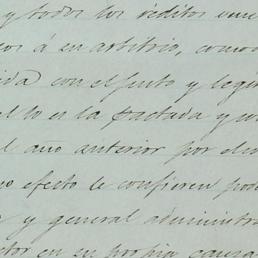 y todos los réditos ven
cos á su arbitrio, como
ida con el justo y legí
al to en la pactada y co
l año anterior por el m
yo efecto le confieren pod
a y general administr
ctor en su propia causa